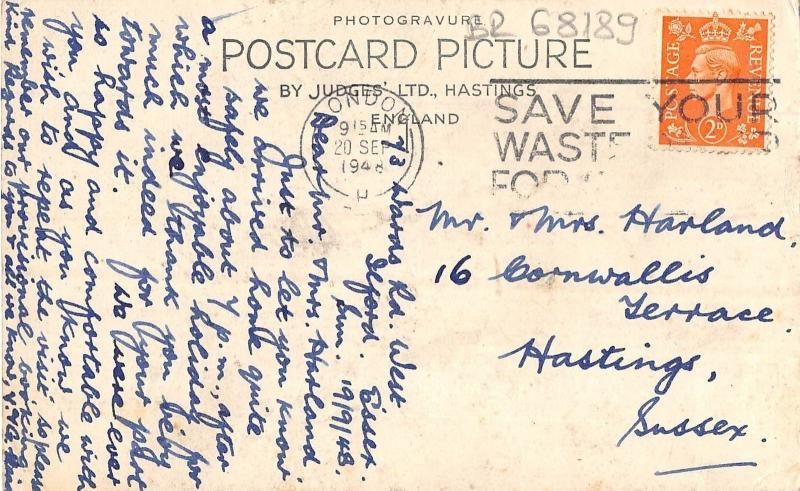 PHOTOGRAVURE
BR 68189
POSTCARD PICTURE
BY JUDGES' LTD., HASTINGS
ENGLAND
LONDON
9 15 AM
20 SEP
1948
SAVE YOUR
WASTE
FOR
POSTAGE REVENUE
2D
Mr. & Mrs. Harland.
16 Cornwallis
Terrace.
Hastings,
Sussex.
73 Rd. West
Ilford. Essex.
Sun. 19/9/48.
Dear Mr. & Mrs. Harland
Just to let you know
we arrived home quite
safely about 7 p.m, after
a most enjoyable holiday for
which we thank you both
much indeed for your part
towards it. We were ever
so happy and comfortable with
you and as you know we
wish to repeat the visit so please
remember our provisional booking.
Kind Regards to you